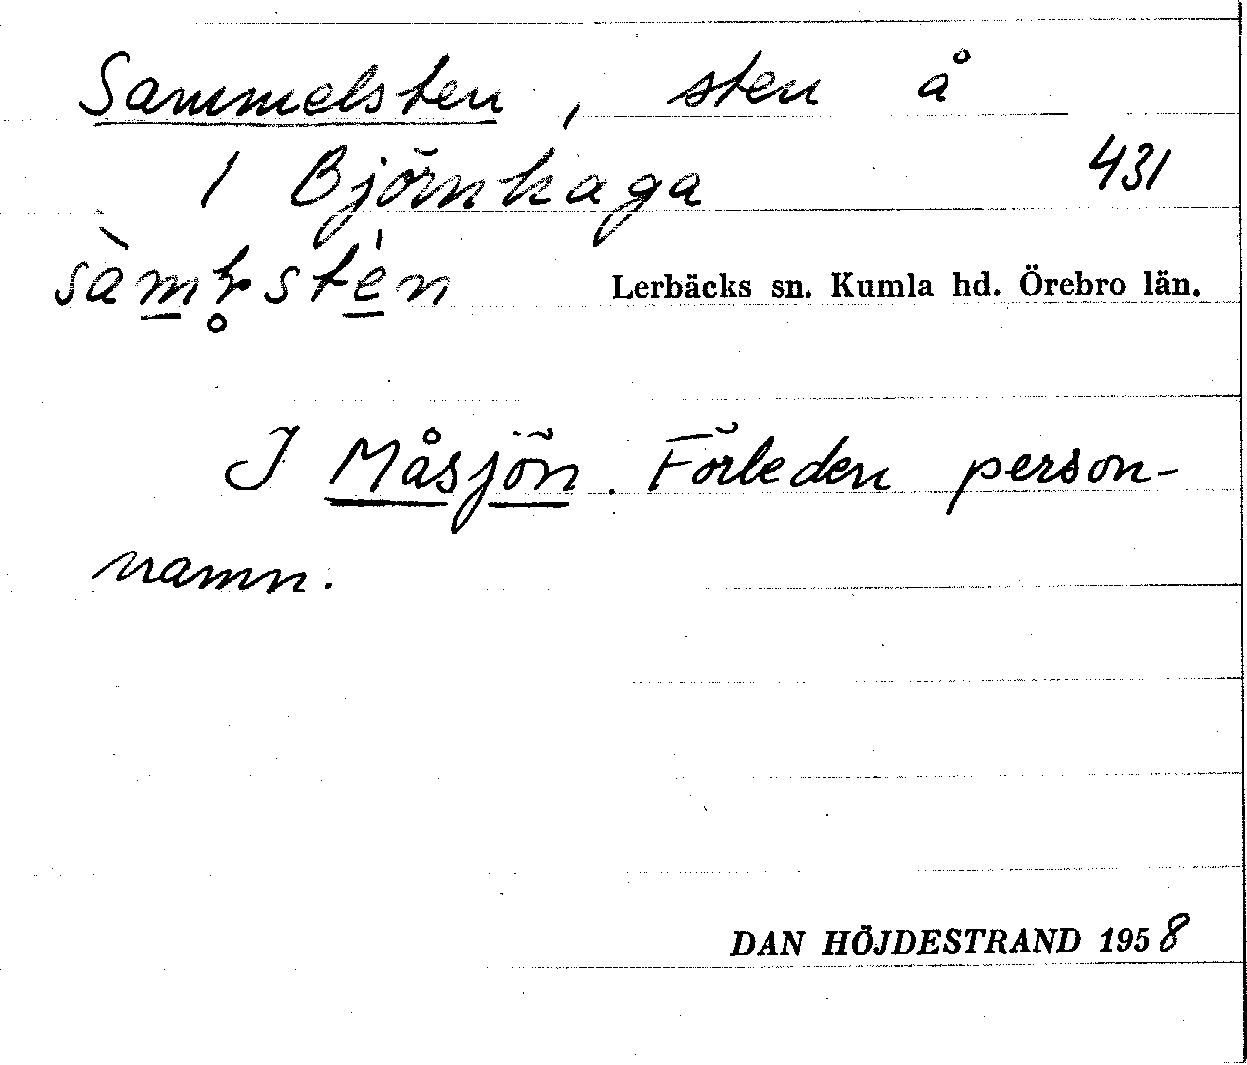 Sammelsten, sten å
1 Björnhaga 431
Lerbäcks sn. Kumla hd. Örebro län.
I Måsjön. Förleden person-
namn.
DAN HÖJDESTRAND 1958